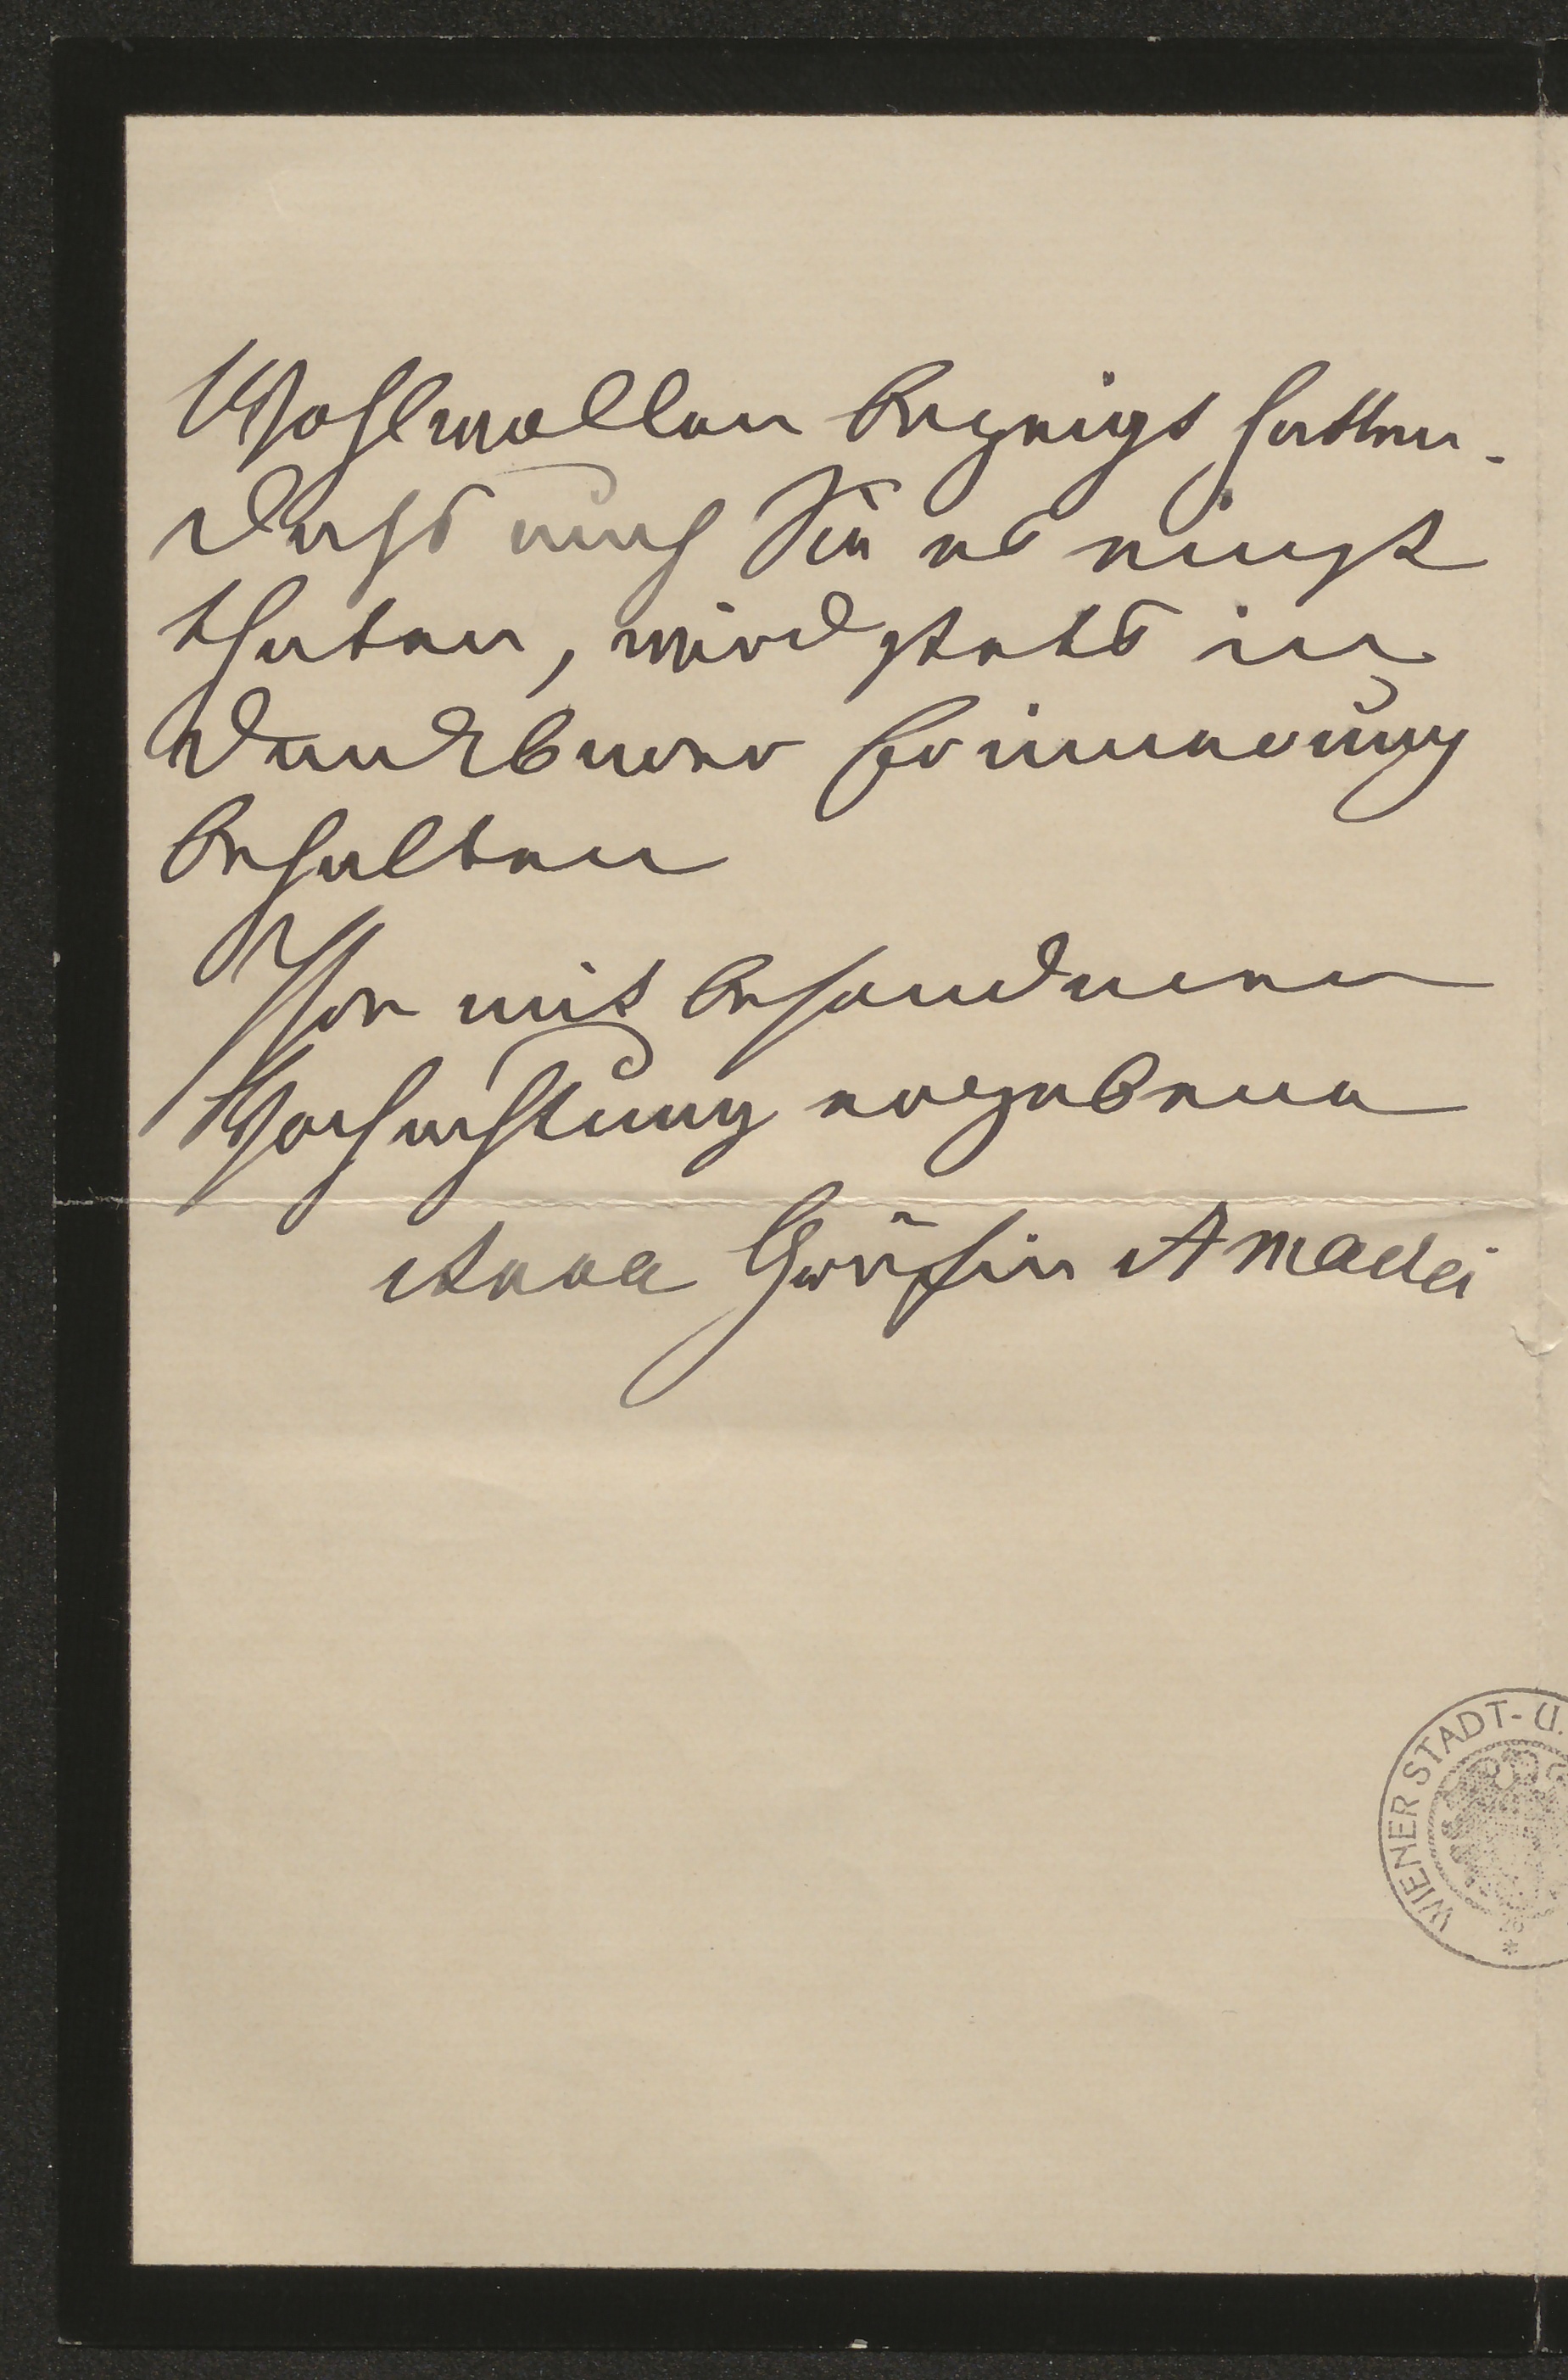 Wohlwollen bezeigt hatten.
Daſs auch Sie es einst
thaten, wird stets in
dankbarer Erinnerung
behalten
Ihre mit besonderer
Hochachtung ergebene
Anna Gräfin Amadei
WIENER STADT- U.